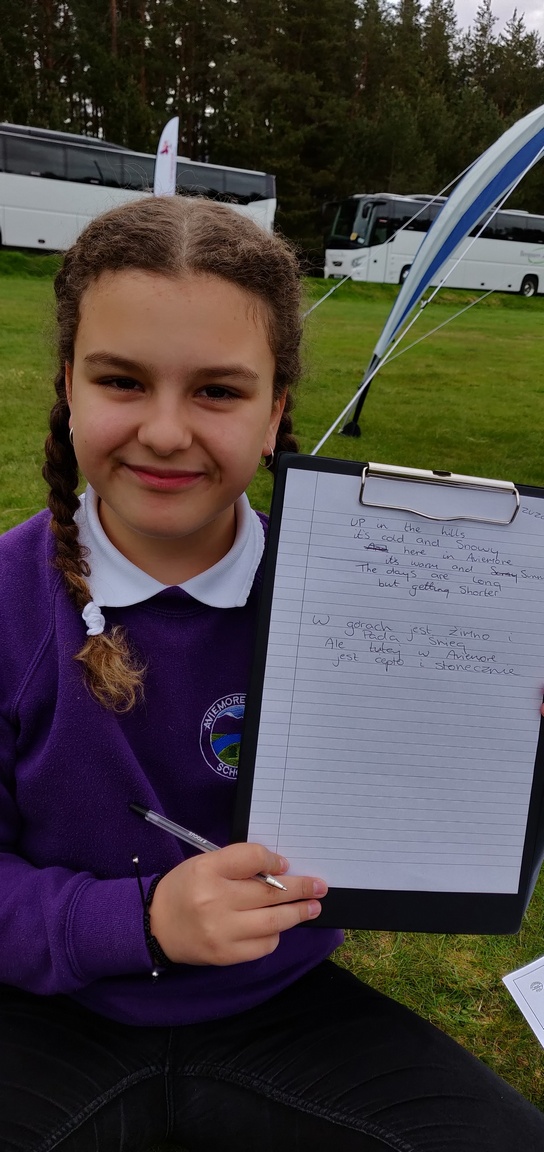 UP in the hills
it's cold and Snowy
here in Aviemore
it's warm and Sunn
The days are long
but getting Shorter
W górach jest zimno i
Pada Śnieg
Ale tutej w Aviemore
jest cepło i słonecznie
AVIEMORE
SCH